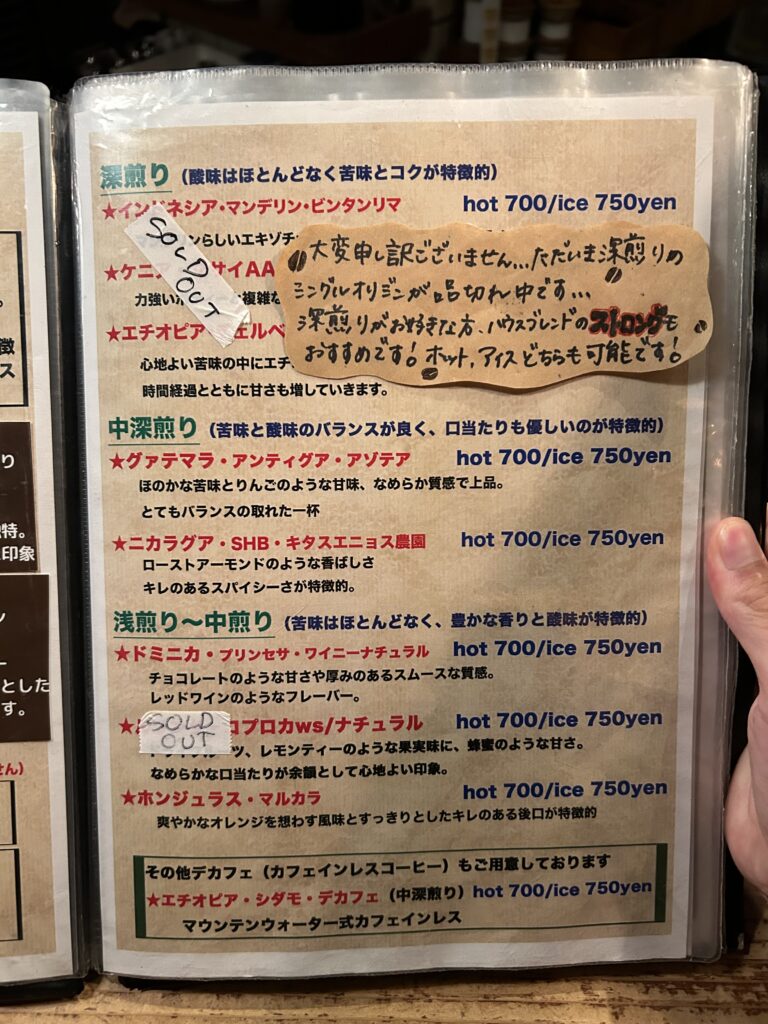 深煎り（酸味はほとんどなく苦味とコクが特徴的）
★インドネシア・マンデリン・ビンタンリマ hot 700/ice 750yen
んらしいエキゾチ
SOLD OUT
★ケニ サイAA
力強い 複雑な
★エチオピア・ ェルベ
心地よい苦味の中にエチ
時間経過とともに甘さも増していきます。
大変申し訳ございません...ただいま深煎りの
シングルオリジンが品切れ中です...
深煎りがお好きな方、ハウスブレンドのストロングも
おすすめです！ホット、アイスどちらも可能です！
中深煎り（苦味と酸味のバランスが良く、口当たりも優しいのが特徴的）
★グァテマラ・アンティグア・アゾテア hot 700/ice 750yen
ほのかな苦味とりんごのような甘味、なめらか質感で上品。
とてもバランスの取れた一杯
★ニカラグア・SHB・キタスエニョス農園 hot 700/ice 750yen
ローストアーモンドのような香ばしさ
キレのあるスパイシーさが特徴的。
浅煎り〜中煎り（苦味はほとんどなく、豊かな香りと酸味が特徴的）
★ドミニカ・プリンセサ・ワイニーナチュラル hot 700/ice 750yen
チョコレートのような甘さや厚みのあるスムースな質感。
レッドワインのようなフレーバー。
SOLD OUT
コプロカws/ナチュラル hot 700/ice 750yen
ツ、レモンティーのような果実味に、蜂蜜のような甘さ。
なめらかな口当たりが余韻として心地よい印象。
★ホンジュラス・マルカラ hot 700/ice 750yen
爽やかなオレンジを想わす風味とすっきりとしたキレのある後口が特徴的
その他デカフェ（カフェインレスコーヒー）もご用意しております
★エチオピア・シダモ・デカフェ（中深煎り）hot 700/ice 750yen
マウンテンウォーター式カフェインレス
徴
ス
り
特。
印象
ン
ー
とした
す。
せん）